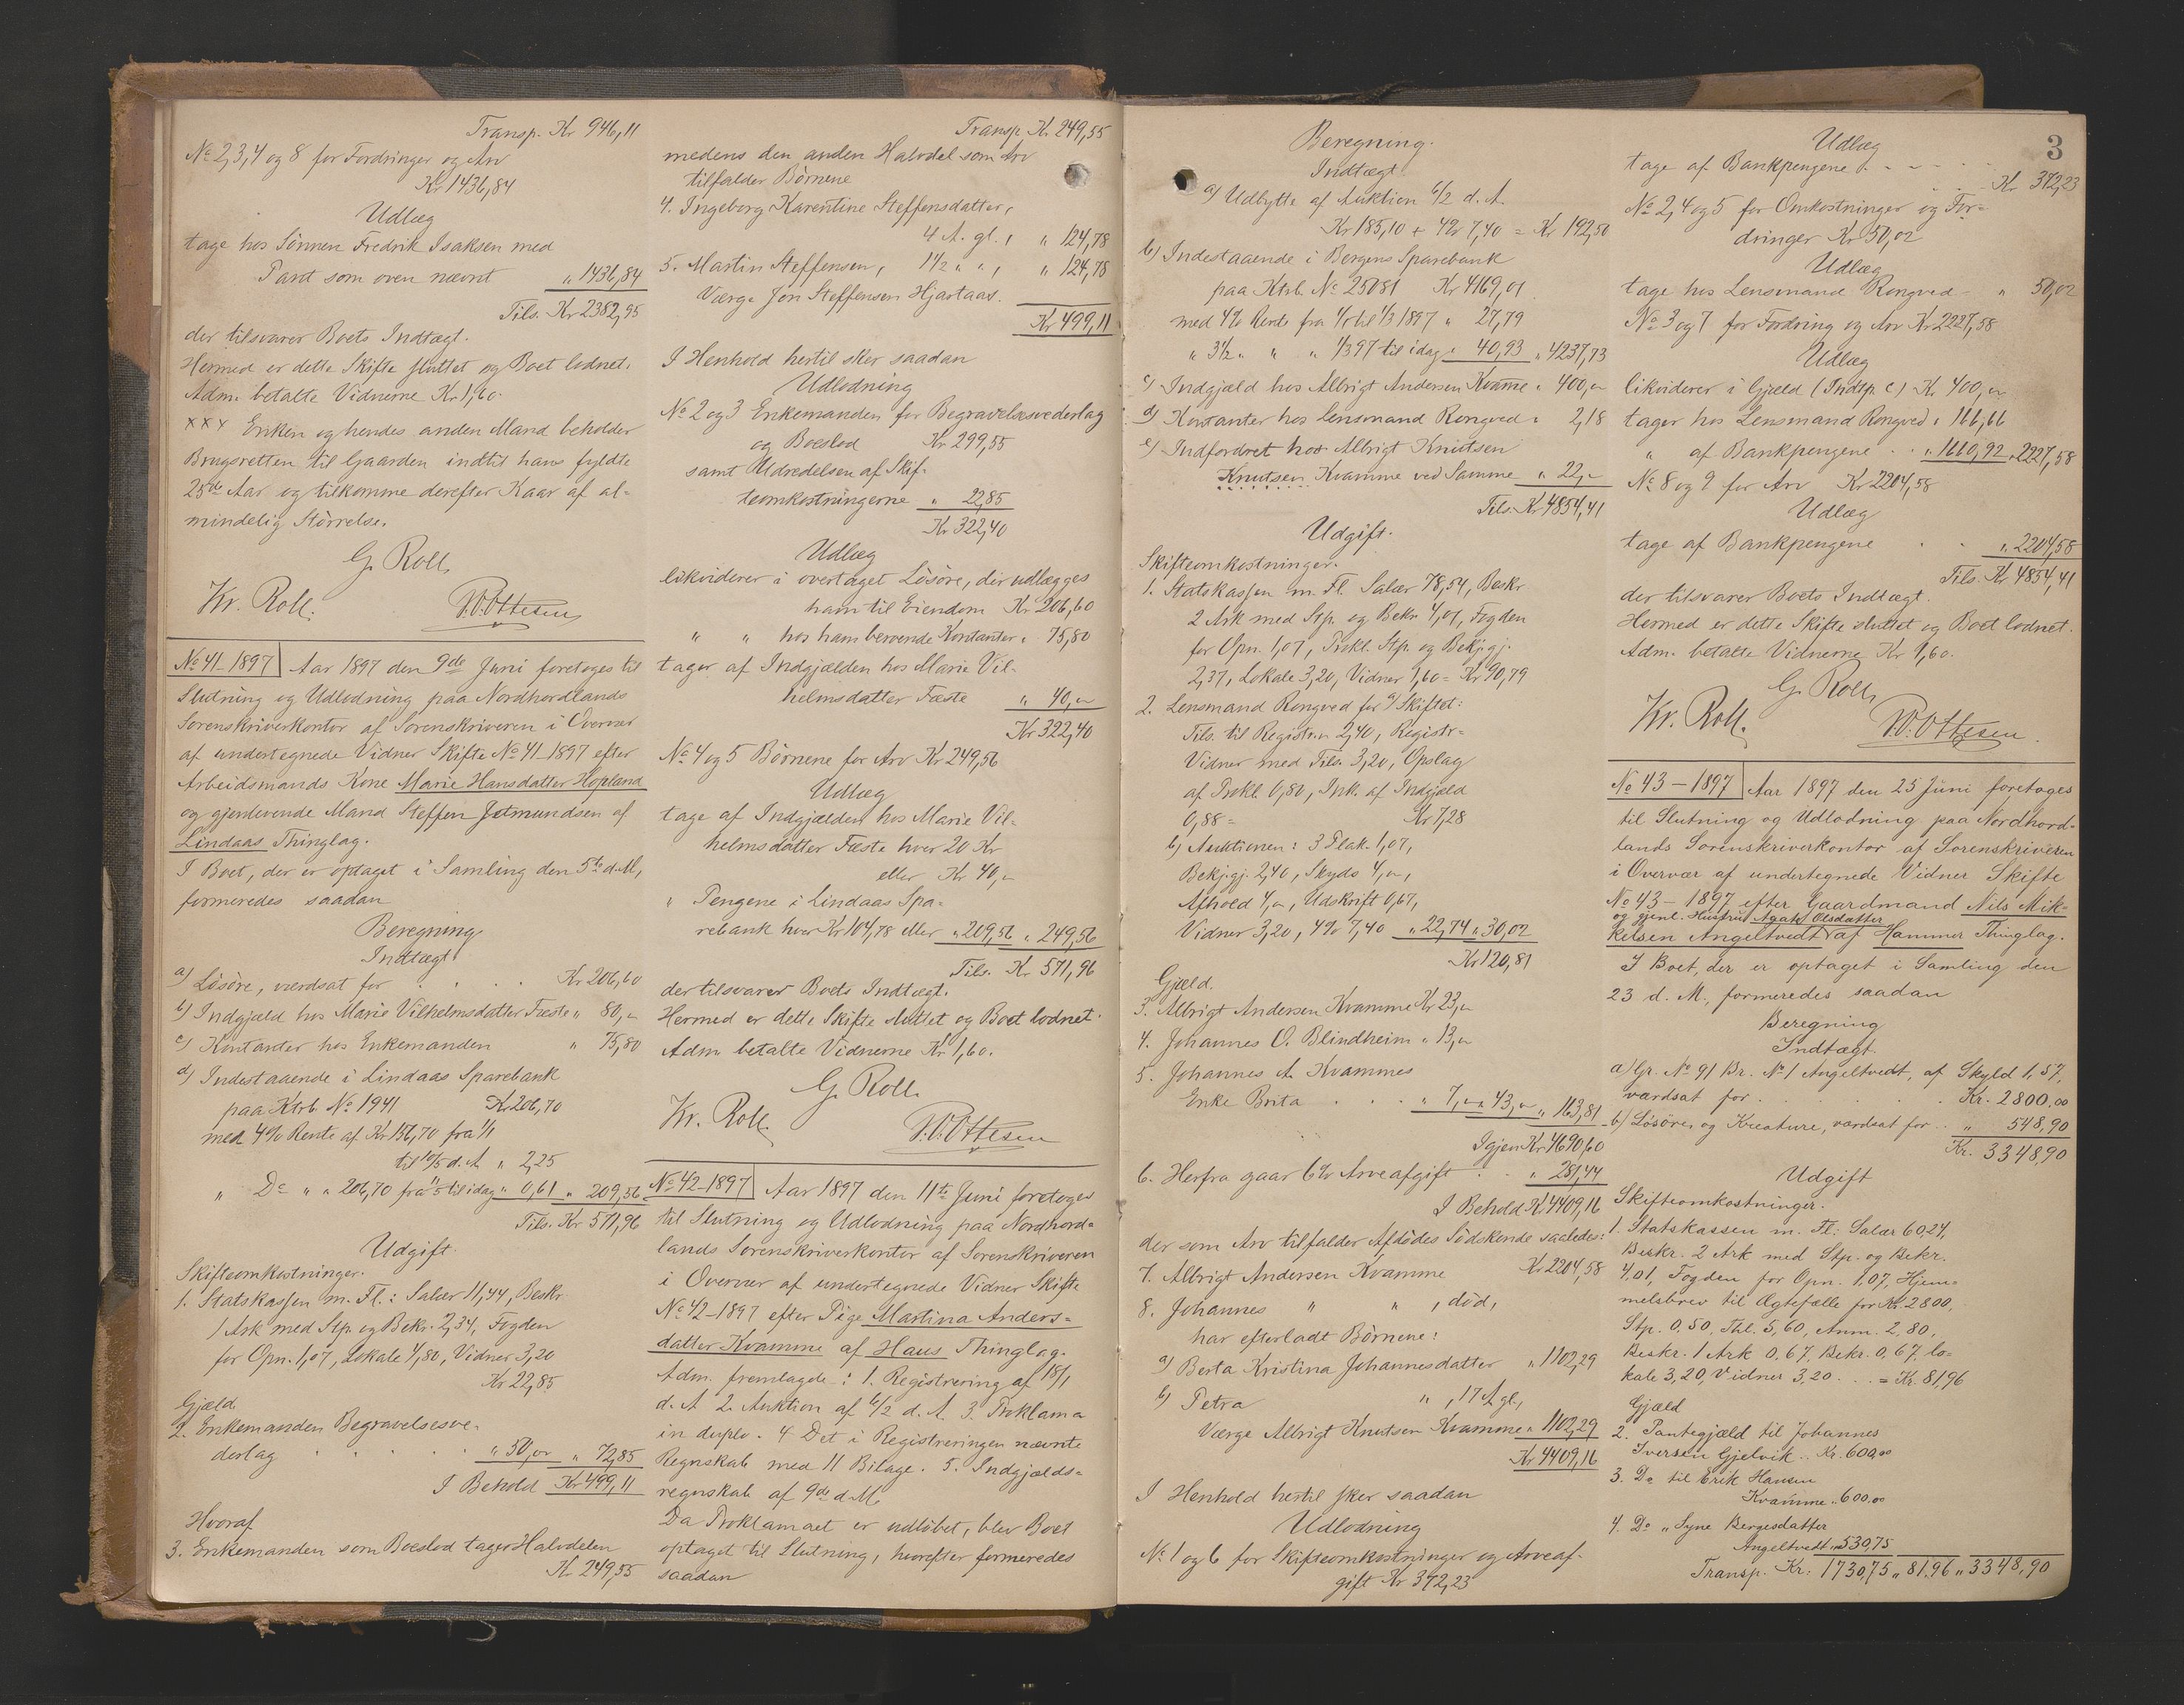 Transp. Kr 946,11
No 2, 3, 4 og 8 for Fordringer og Arv
Kr 1436,84
Udlæg
tage hos Sønnen Fredrik Isaksen med
Pant som oven nævnt „ 1436,84
Tils. Kr 2382,95
der tilsvarer Boets Indtægt.
Hermed er dette Skifte sluttet og Boet lodnet.
Adm. betalte Vidnerne Kr 1,60.
××× Enken og hendes anden Mand beholder
Brugsretten til Gaarden indtil hans fyldte
25de Aar og tilkomme derefter Kaar af al-
mindelig Størrelse.
G. Roll.
Kr. Roll. P.O. Ottesen
No 41-1897 Aar 1897 den 9de Juni foretoges til
Slutning og Udlodning paa Nordhordlands
Sorenskriverkontor af Sorenskriveren i Overvær
af undertegnede Vidner Skifte No 41-1897 efter
Arbeidsmands Kone Marie Hansdatter Hopland
og gjenlevende Mand Steffen Jetmundsen af
Lindaas Thinglag.
I Boet, der er optaget i Samling den 5te d. M,
formeredes saadan
Beregning
Indtægt
a) Løsøre, værdsat for . . . . Kr 206,60
b) Indgjæld hos Marie Vilhelmsdatter Fæste „ 80,„
c) Kontanter hos Enkemanden „ 75,80
d) Indestaaende i Lindaas Sparebank
paa Ktrb. No 1941 Kr 206,70
med 4% Rente af Kr 156,70 fra 1/1
til 10/5 d. A „ 2,25
„ Do „ „ 206,70 fra 11/5 til idag „ 0,61 „ 209,56
Tils. Kr 571,96
Udgift.
Skifteomkostninger.
1. Statskassen m. Fl.: Salær 11,44, Beskr.
1 Ark med Stp. og Bekr. 2,34, Fogden
for Opn. 1,07, Lokale 4,80, Vidner 3,20
Kr 22,85
Gjæld.
2. Enkemanden Begravelsesve-
derlag . . . . . „ 50,„ „ 72,85
I Behold Kr 499,11
Hvoraf
3. Enkemanden som Boeslod tager Halvdelen
Kr 249,55
Transp Kr 249,55
medens den anden Halvdel som Arv
tilfalder Børnene
4. Ingeborg Karentine Steffensdatter,
4 A. gl., „ 124,78
5. Martin Steffensen, 1½ „ „, „ 124,78
Værge Jon Steffensen Hjartaas.
Kr 499,11
I Henhold hertil sker saadan
Udlodning
No 2 og 3 Enkemanden for Begravelsesvederlag
og Boeslod Kr 299,55
samt Udredelsen af Skif-
teomkostningerne „ 22,85
Kr 322,40
Udlæg
likviderer i overtaget Løsøre, der udlægges
ham til Eiendom Kr 206,60
„ „ hos ham beroende Kontanter „ 75,80
tager af Indgjælden hos Marie Vil-
helmsdatter Fæste „ 40,„
Kr 322,40
No 4 og 5 Børnene for Arv Kr 249,56
Udlæg
tage af Indgjælden hos Marie Vil-
helmsdatter Fæste hver 20 Kr
eller Kr 40,„
„ Pengene i Lindaas Spa-
rebank hver Kr 104,78 eller „ 209,56 „ 249,56
Tils. Kr 571,96
der tilsvarer Boets Indtægt.
Hermed er dette Skifte sluttet og Boet lodnet.
Adm. betalte Vidnerne Kr 1,60.
G. Roll.
Kr. Roll. P.O. Ottesen
No 42-1897 Aar 1897 den 11te Juni foretoges
til Slutning og Udlodning paa Nordhord-
lands Sorenskriverkontor af Sorenskriveren
i Overvær af undertegnede Vidner Skifte
No 42-1897 efter Pige Martina Anders-
datter Kvamme af Haus Thinglag.
Adm. fremlagde: 1. Registrering af 18/1
d. A 2. Auktion af 6/2 d. A. 3. Proklama
in duplo. 4 Det i Registreringen nævnte
Regnskab med 11 Bilage. 5. Indgjælds-
regnskab af 9de d. M.
Da Proklamaet er udløbet, blev Boet
optaget til Slutning, hvorefter formeredes
saadan
Beregning.
Indtægt.
a) Udbytte af Auktion 6/2 d. A.
Kr 185,10 + 4% 7,40 = Kr 192,50
b) Indestaaende i Bergens Sparebank
paa Ktrb. No 25081 Kr 4169,01
med 4% Rente fra 1/1 til 1/3 1897 „ 27,79
„ 3½ „ „ „ 1/3 97 til idag „ 40,93 „ 4237,73
c) Indgjæld hos Albrigt Andersen Kvamme „ 400,„
d) Kontanter hos Lensmand Rongved „ 2,18
e) Indfordret hos Albrigt Knutsen
Knutsen Kvamme ved Samme „ 22,„
Tils. Kr 4854,41
Udgift.
Skifteomkostninger.
1. Statskassen m. Fl. Salær 78,54, Beskr.
2 Ark med Stp. og Bekr. 4,01, Fogden
for Opn. 1,07, Prokl. Stp. og Bekjgj.
2,37, Lokale 3,20, Vidner 1,60 = Kr 90,79
2. Lensmand Rongved for a) Skiftet:
Tils. til Registrn 2,40, Registr-
Vidner med Tils. 3,20, Opslag
af Prokl. 0,80, Ink. af Indgjæld
0,88 = Kr 7,28
b) Auktionen: 3 Plak. 1,07,
Bekjgj. 2,40, Skyds 4,„,
Afhold 4,„, Udskrift 0,67,
Vidner 3,20, 4% 7,40 „ 22,74 „ 30,02
Kr 120,81
Gjæld.
3. Albrigt Andersen Kvamme Kr 23,„
4. Johannes O. Blindheim „ 13,„
5. Johannes A. Kvammes
Enke Brita . . . „ 7,„ „ 43,„ „ 163,81
Igjen Kr 4690,60
6. Herfra gaar 6% Arveafgift . . „ 281,44
I Behold Kr 4409,16
der som Arv tilfalder Afdødes Sødskende saaledes:
7. Albrigt Andersen Kvamme Kr 2204,58
8. Johannes „ „ , død,
har efterladt Børnene:
a) Berta Kristina Johannesdatter „ 1102,29
b) Petra „ , 17 A gl.,
Værge Albrigt Knutsen Kvamme „ 1102,29
Kr 4409,16
I Henhold hertil sker saadan
Udlodning
No 1 og 6 for Skifteomkostninger og Arveaf-
gift Kr 372,23
3
Udlæg
tage af Bankpengene . . . .
Kr 372,23
No 2, 4 og 5 for Omkostninger og For-
dringer Kr 50,02
Udlæg
tage hos Lensmand Rongved „ 50,02
No 3 og 7 for Fordring og Arv Kr 2227,58
Udlæg
likviderer i Gjæld (Indtp. c) Kr 400,„
tager hos Lensmand Rongved „ 166,66
„ af Bankpengene . . „ 1660,92 „ 2227,58
No 8 og 9 for Arv Kr 2204,58
Udlæg
tage af Bankpengene . . „ 2204,58
Tils. Kr 4854,41
der tilsvarer Boets Indtægt.
Hermed er dette Skifte sluttet og Boet lodnet.
Adm. betalte Vidnerne Kr 1,60.
G. Roll.
Kr. Roll. P.O. Ottesen.
No 43-1897 Aar 1897 den 25 Juni foretoges
til Slutning og Udlodning paa Nordhord-
lands Sorenskriverkontor af Sorenskriveren
i Overvær af undertegnede Vidner Skifte
No 43-1897 efter Gaardmand Nils Mik-
og gjenl. Hustru Agate Olsdatter
kelsen Angeltvedt af Hammer Thinglag.
I Boet, der er optaget i Samling den
23 d. M., formeredes saadan
Beregning
Indtægt.
a) Gr. No 91 Br. No 1 Angeltvedt, af Skyld 1,57,
værdsat for . . . . . Kr. 2800,00
b) Løsøre og Kreature, værdsat for . . „ 548,90
Kr. 3348,90
Udgift
Skifteomkostninger.
1. Statskassen m. Fl: Salær 60,24,
Beskr. 2 Ark med Stp. og Bekr.
4,01, Fogden for Opn. 1,07, Hjem-
melsbrev til Ægtefælle for Kr. 2800,
Stp. 0,50, Thl. 5,60, Anm. 2,80,
Beskr. 1 Ark 0,67, Bekr. 0,67, lo-
kale 3,20, Vidner 3,20 . . . = Kr. 81,96
Gjæld
2. Pantegjæld til Johannes
Iversen Gjelvik . . Kr. 600,00
3. Do til Erik Hansen
Kvamme „ 600,00
4. Do „ Syne Bergesdatter
Angeltvedt „ 530,75
Transp. Kr. 1730,75 „ 81,96 „ 3348,90